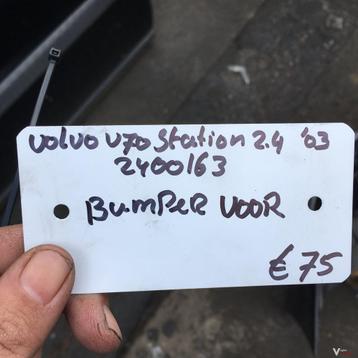 Volvo V70 Station 2.4 '03
2400163
BUMPER VOOR
€75